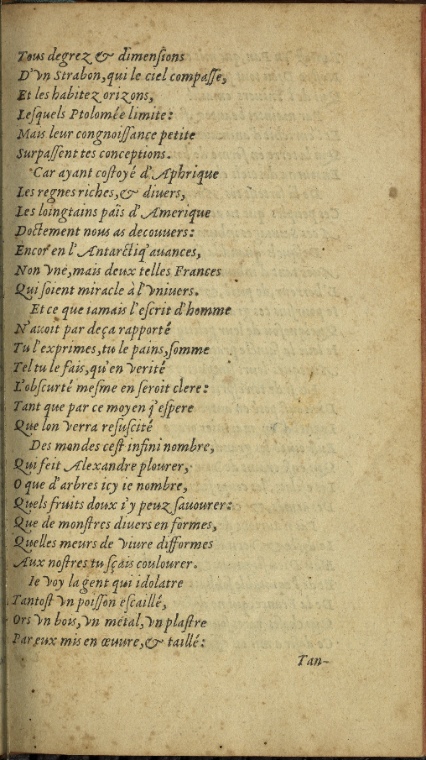 Tous degrez & dimensions
D'vn Strabon, qui le ciel compasse,
Et les habitez orizons,
Lesquels Ptolomée limite:
Mais leur congnoissance petite
Surpassent tes conceptions.
Car ayant costoyé d'Aphrique
Les regnes riches, & diuers,
Les loingtains païs d'Amerique
Doctement nous as decouuers:
Encor en l'Antarctiq' auances,
Non vne, mais deux telles Frances
Qui soient miracle à l'vniuers.
Et ce que iamais l'escrit d'homme
N'auoit par deça rapporté
Tu l'exprimes, tu le pains, somme
Tel tu le fais, qu'en verité
L'obscurté mesme en seroit clere:
Tant que par ce moyen i'espere
Que lon verra resuscité
Des mondes cest infini nombre,
Qui feit Alexandre plourer,
O que d'arbres icy ie nombre,
Quels fruits doux i'y peuz sauourer:
Que de monstres diuers en formes,
Quelles meurs de viure difformes
Aux nostres tu sçais coulourer.
Ie voy la gent qui idolatre
Tantost vn poisson escaillé,
Ors vn bois, vn metal, vn plastre
Par eux mis en œuure, & taillé:
Tan-